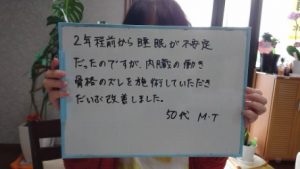 2年程前から睡眠が不安定
だったのですが、内臓の働き
骨格のズレを施術していただき
だいぶ改善しました。
50代 M・T